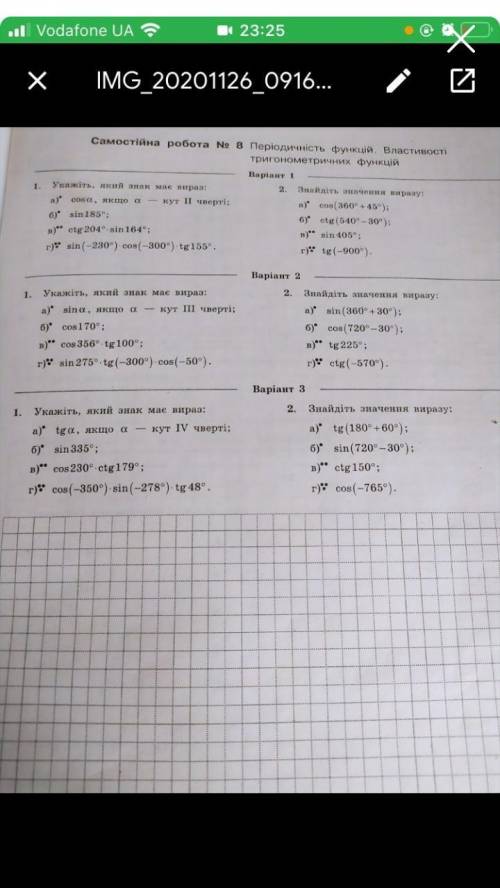 Vodafone UA 23:25
IMG_20201126_0916...
Самостійна робота № 8 Періодичність функцій. Властивості
тригонометричних функцій
Варіант 1
1. Укажіть, який знак має вираз:
а)• cosα, якщо α — кут II чверті;
б)• sin185°;
в)•• ctg204°·sin164°;
г)•• sin(−230°)·cos(−300°)·tg155°.
2. Знайдіть значення виразу:
а)• cos(360°+45°);
б)• ctg(540°−30°);
в)•• sin405°;
г)•• tg(−900°).
Варіант 2
1. Укажіть, який знак має вираз:
а)• sinα, якщо α — кут III чверті;
б)• cos170°;
в)•• cos356°·tg100°;
г)•• sin275°·tg(−300°)·cos(−50°).
2. Знайдіть значення виразу:
а)• sin(360°+30°);
б)• cos(720°−30°);
в)•• tg225°;
г)•• ctg(−570°).
Варіант 3
1. Укажіть, який знак має вираз:
а)• tgα, якщо α — кут IV чверті;
б)• sin335°;
в)•• cos230°·ctg179°;
г)•• cos(−350°)·sin(−278°)·tg48°.
2. Знайдіть значення виразу:
а)• tg(180°+60°);
б)• sin(720°−30°);
в)•• ctg150°;
г)•• cos(−765°).